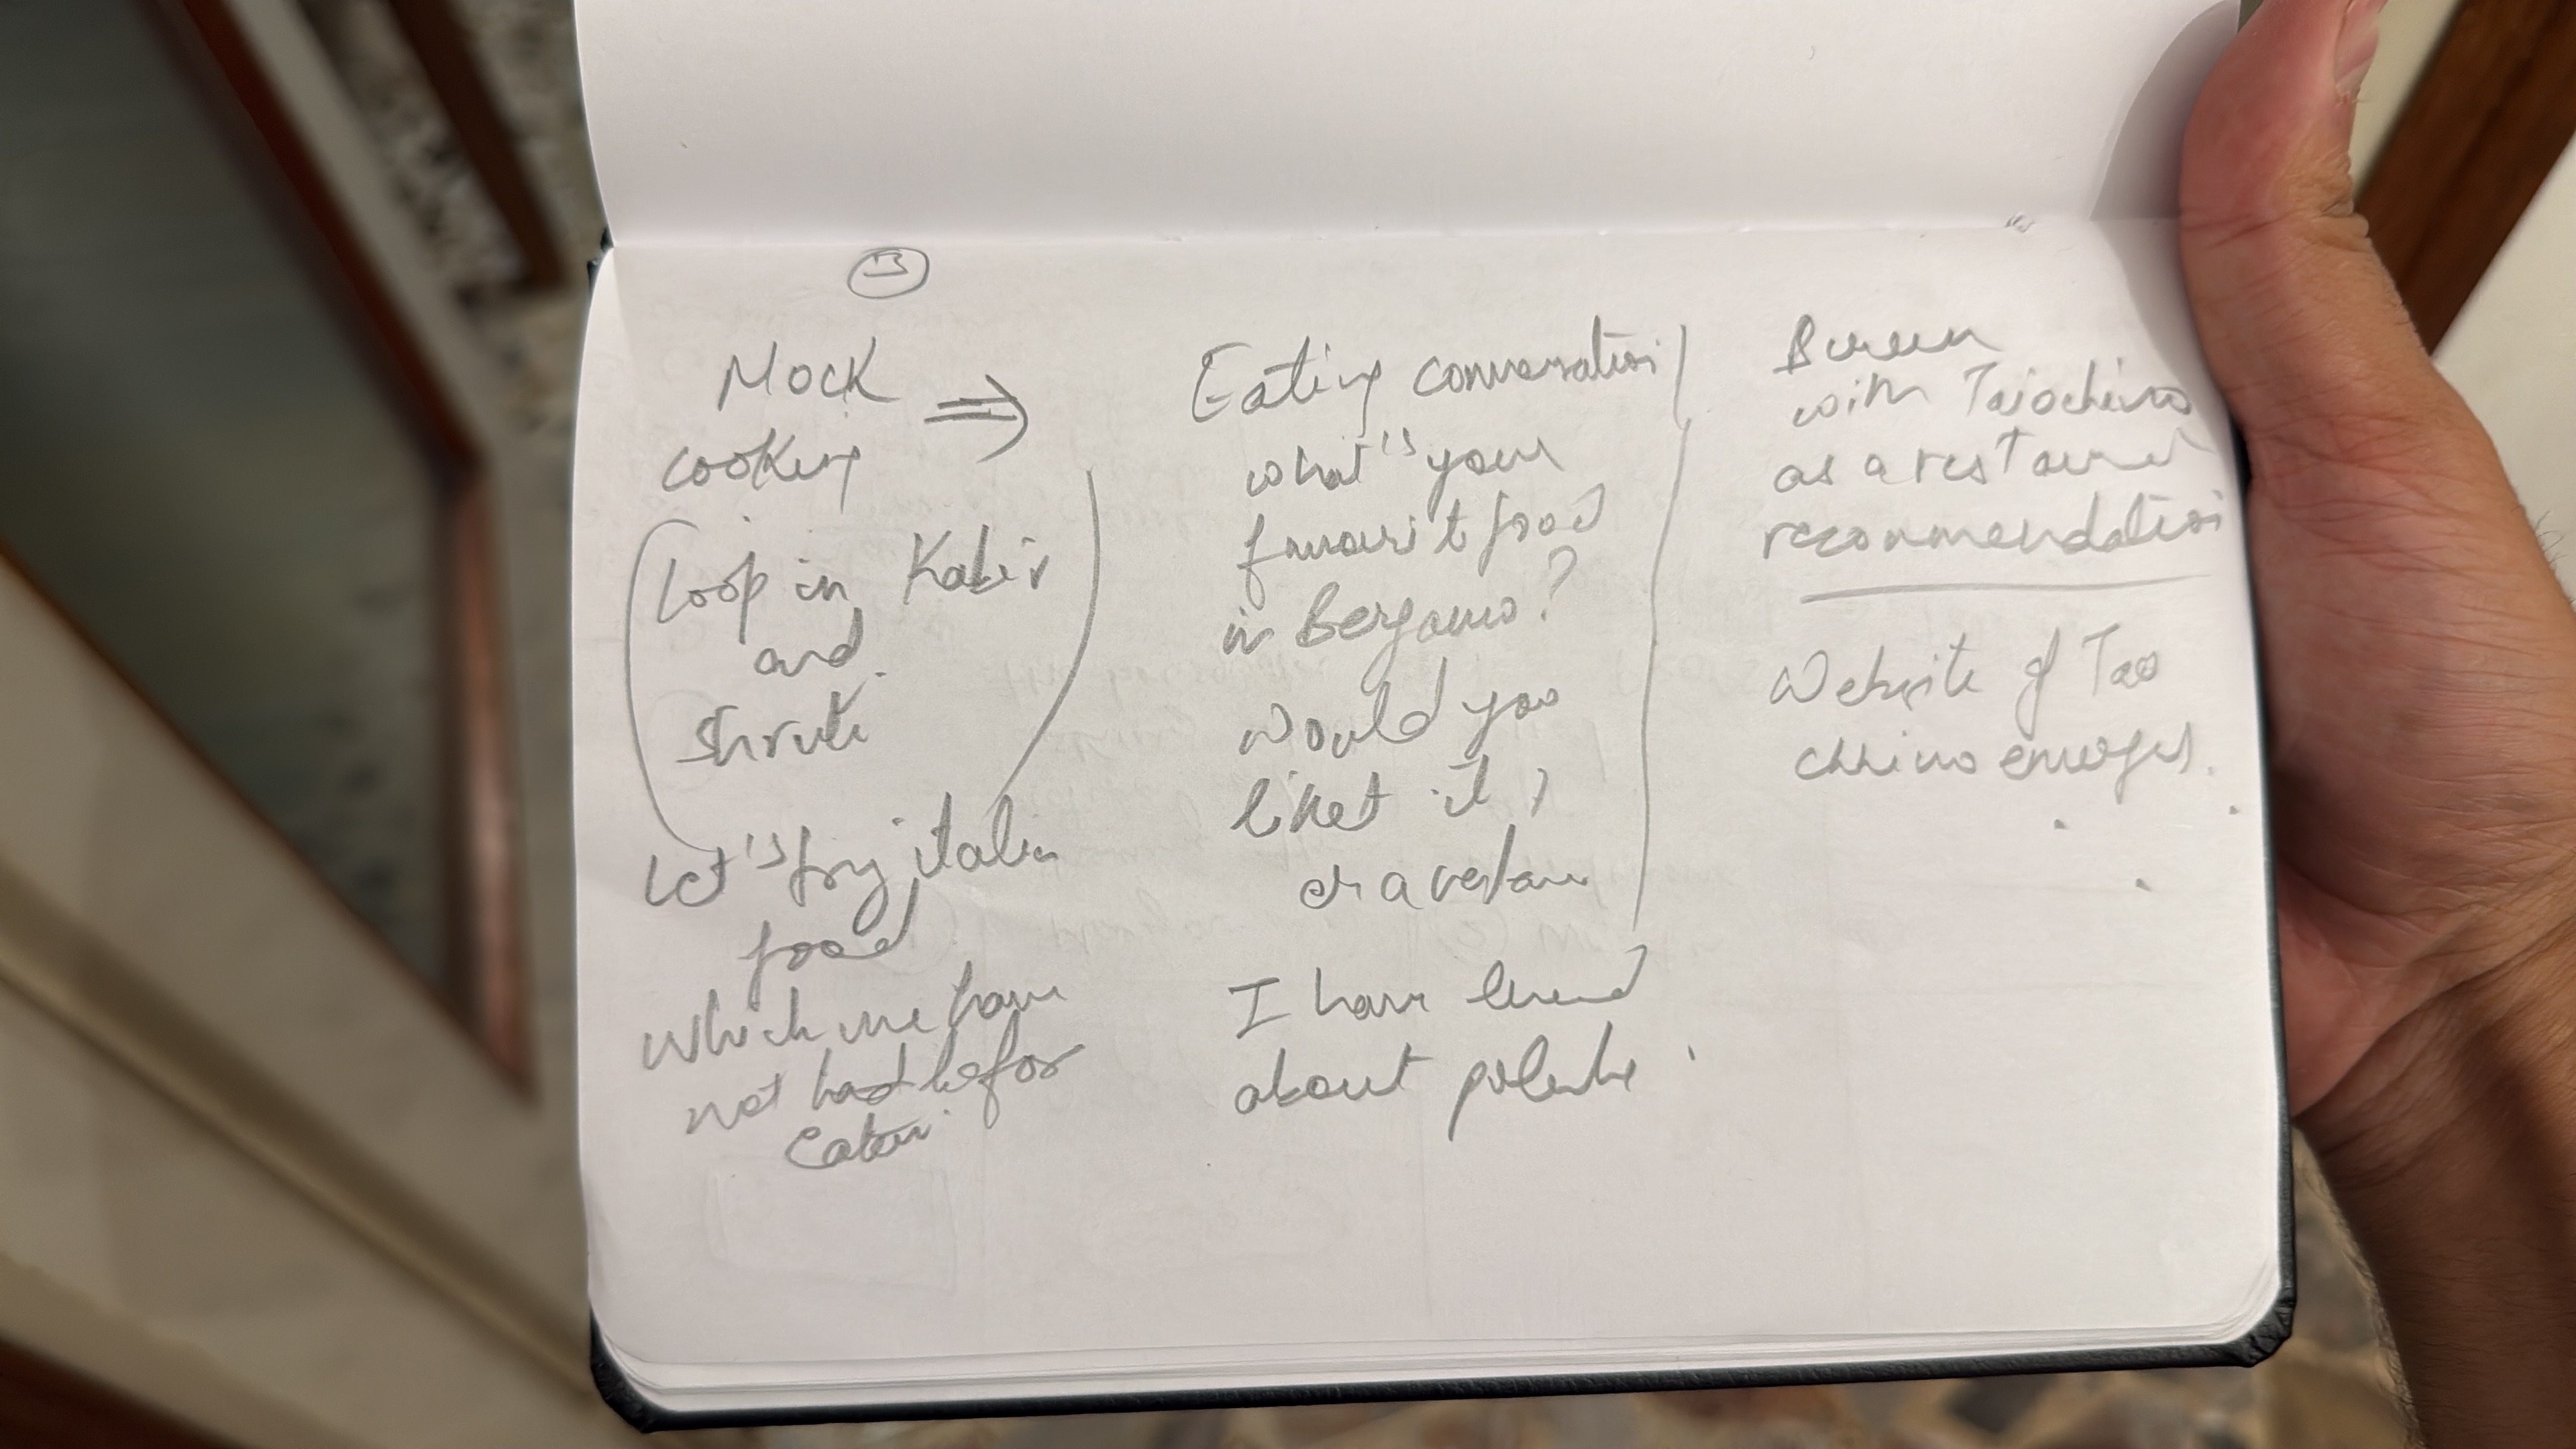 Mock
cooking
⇒
(Loop in Kabir
and
Shruti)
Let's try italian
food
which we have
not had before
Eaten
Eating conversation
what's your
favourite food
in Bergamo?
would you
like it,
or a
I have heard
about
Screen
with
as a restaurant
recommendation
Website of Tao
chino emerges.